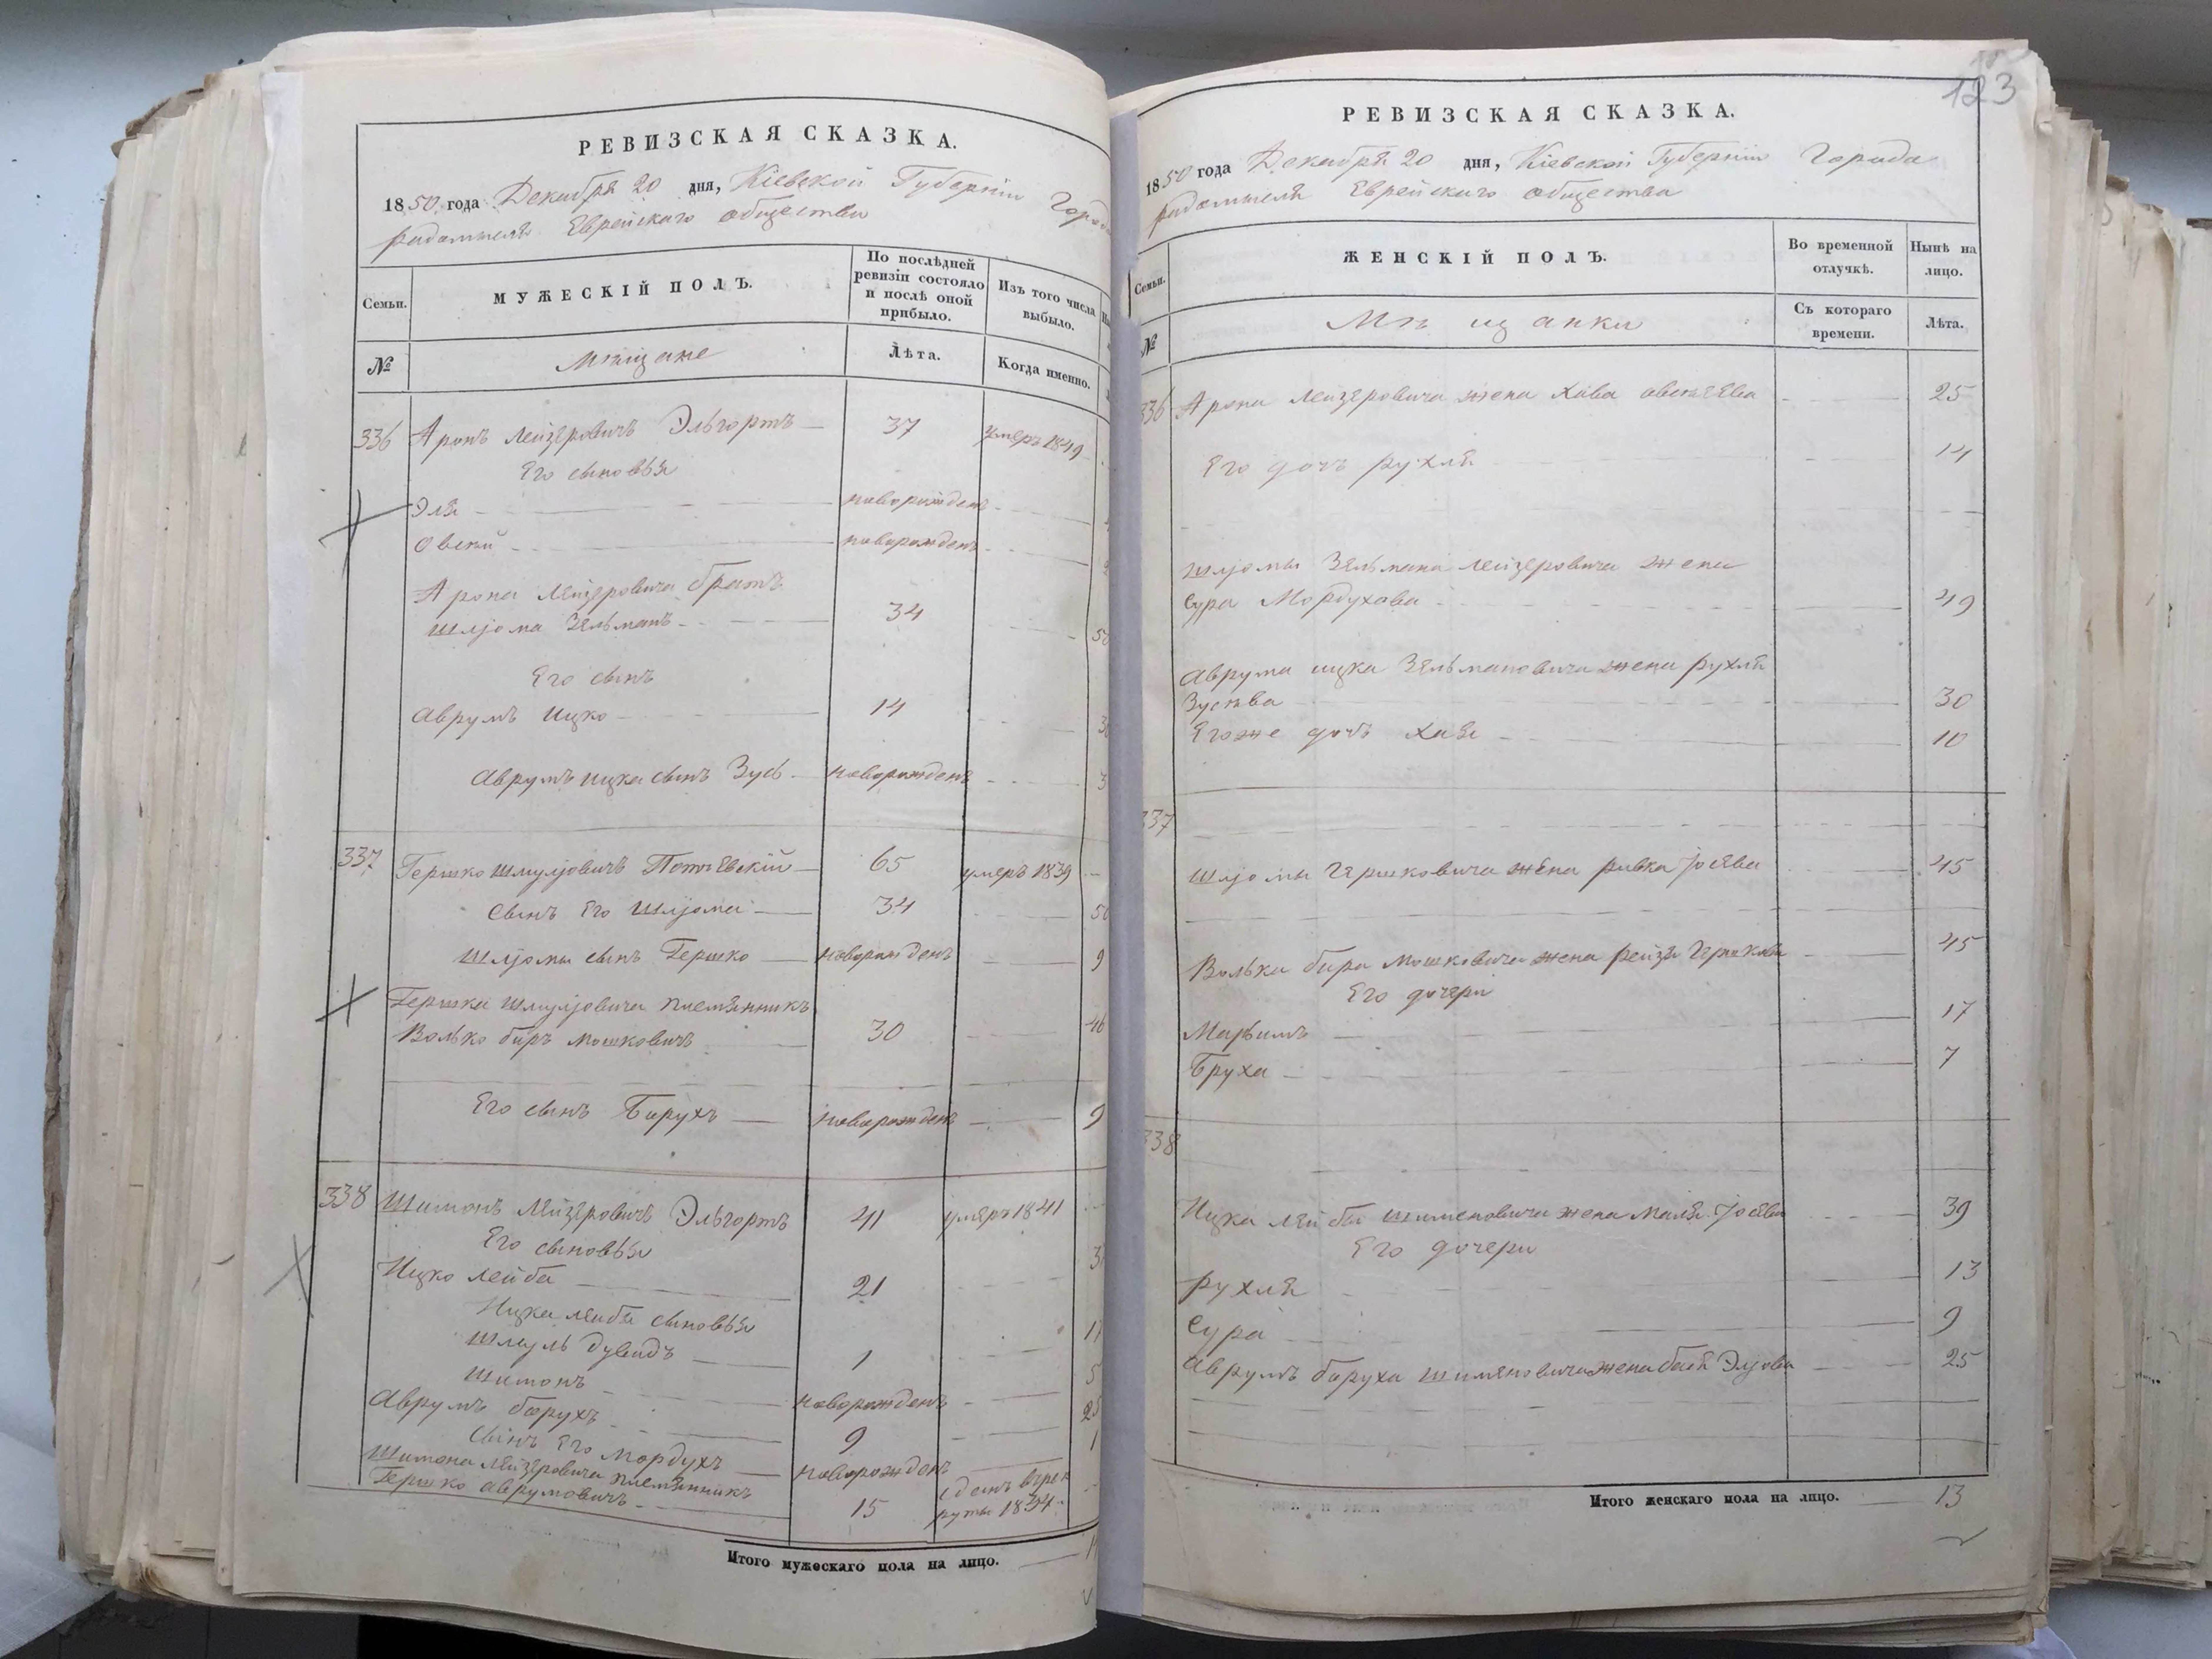 РЕВИЗСКАЯ СКАЗКА.
1850 года Декабря 20 дня, Кіевской Губерніи Города
радомысля Еврейскаго общества
Семьи.
МУЖЕСКІЙ ПОЛЪ.
По послѣдней ревизіи состояло и послѣ оной прибыло.
Изъ того числа выбыло.
№
мѣщане
Лѣта.
Когда именно.
336 Аронъ Лейзеровичъ Эльгортъ 37 умеръ 1849
Его сыновья
Эля новорожденъ
Овсей новорожденъ
Арона Лейзеровича братъ
Шліома Зельманъ 34 50
Его сынъ
Аврумъ Ицко 14
Аврумъ ицка сынъ Зусь новорожденъ
337 Гершко Шмуліовичъ Потіевскій 65 умеръ 1839
Сынъ Его Шліома 34 50
Шліомы сынъ Гершко новорожденъ 9
Гершка Шмуліовича племянникъ
Волько биръ мошковичъ 30 46
Его сынъ Барухъ новорожденъ 9
338 Шимонъ Лейзеровичъ Эльгортъ 41 умеръ 1841
Его сыновья
Ицко лейба 21
Ицка лейбы сыновья
Шмуль дувидъ 1 17
Шимонъ новорожденъ 5
Аврумъ барухъ 9 25
Сынъ Его мордухъ новорожденъ 1
Шимона Лейзеровича племянникъ
Гершко аврумовичъ 15 сданъ въ рек
руты 1834
Итого мужескаго пола на лицо.
123
РЕВИЗСКАЯ СКАЗКА.
1850 года Декабря 20 дня, Кіевской Губерніи Города
радомысля Еврейскаго общества
Семьи.
ЖЕНСКІЙ ПОЛЪ.
Во временной отлучкѣ.
Нынѣ на лицо.
№
Мѣщанки
Съ котораго времени.
Лѣта.
336 Арона Лейзеровича жена Хава овсеева 25
Его дочь рухля 14
Шліомы Зельмана лейзеровича жена
Сура Мордухова 49
Аврума ицка Зельмановича жена рухля
Зусева 30
Егоже дочь Хая 10
337
Шліомы Гершковича жена ривка Іосева 45
Волька бира мошковича жена рейзя Гершкова 45
Его дочери
Марьимъ 17
Бруха 7
338
Ицка лейбы шимоновича жена маля Іосева 39
Его дочери
рухля 13
Сура 9
Аврумъ баруха шимановича жена бася Эліова 25
Итого женскаго пола на лицо. 13